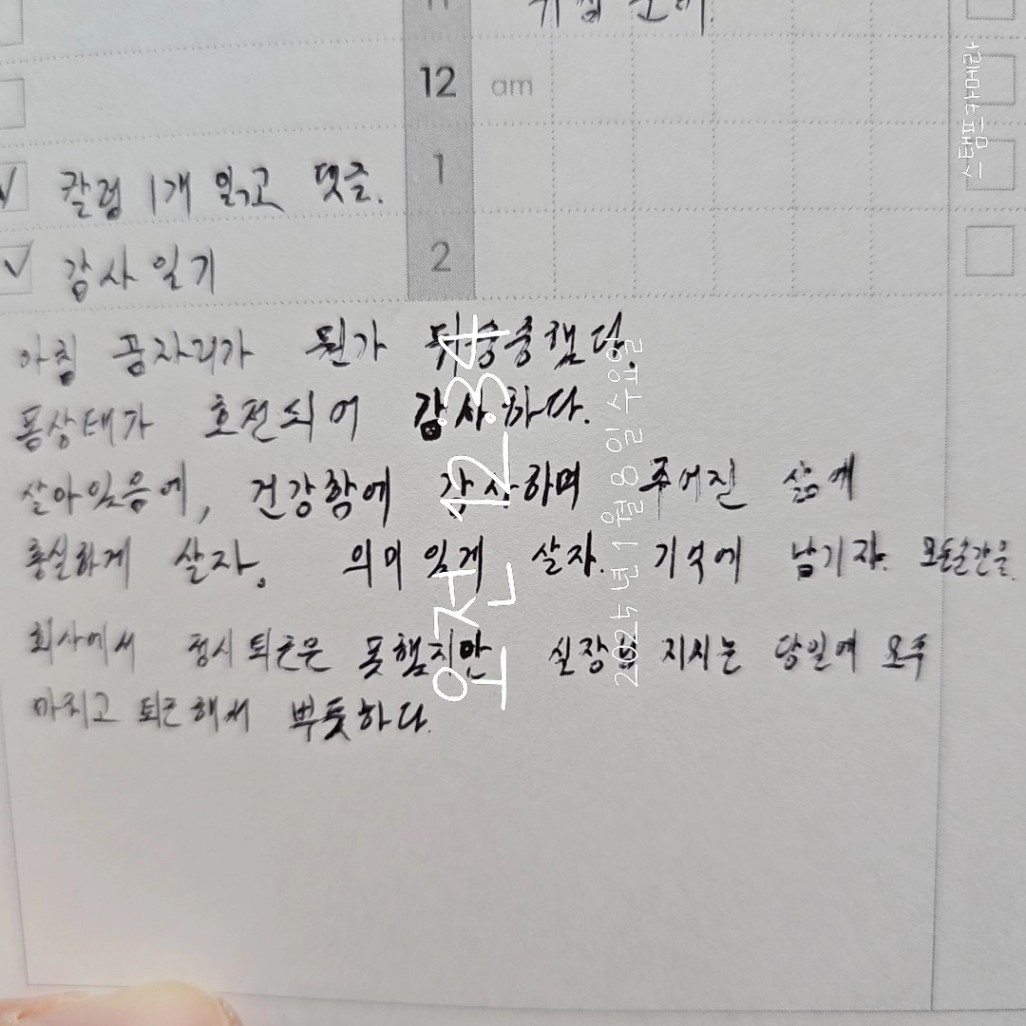 11
취침 준비
12 am
1
칼럼 1개 읽고 댓글.
2
감사일기
아침 꿈자리가 뭔가 뒤숭숭했다.
몸상태가 호전되어 감사하다.
살아있음에, 건강함에 감사하며 주어진 삶에
충실하게 살자. 의미 있게 살자. 기억에 남기자. 모든순간을.
회사에서 정시 퇴근은 못했지만 실장님 지시는 당일에 모두
마치고 퇴근해서 뿌듯하다.
오전 12:34
2025년 1월 8일 수요일
스탬프카메라